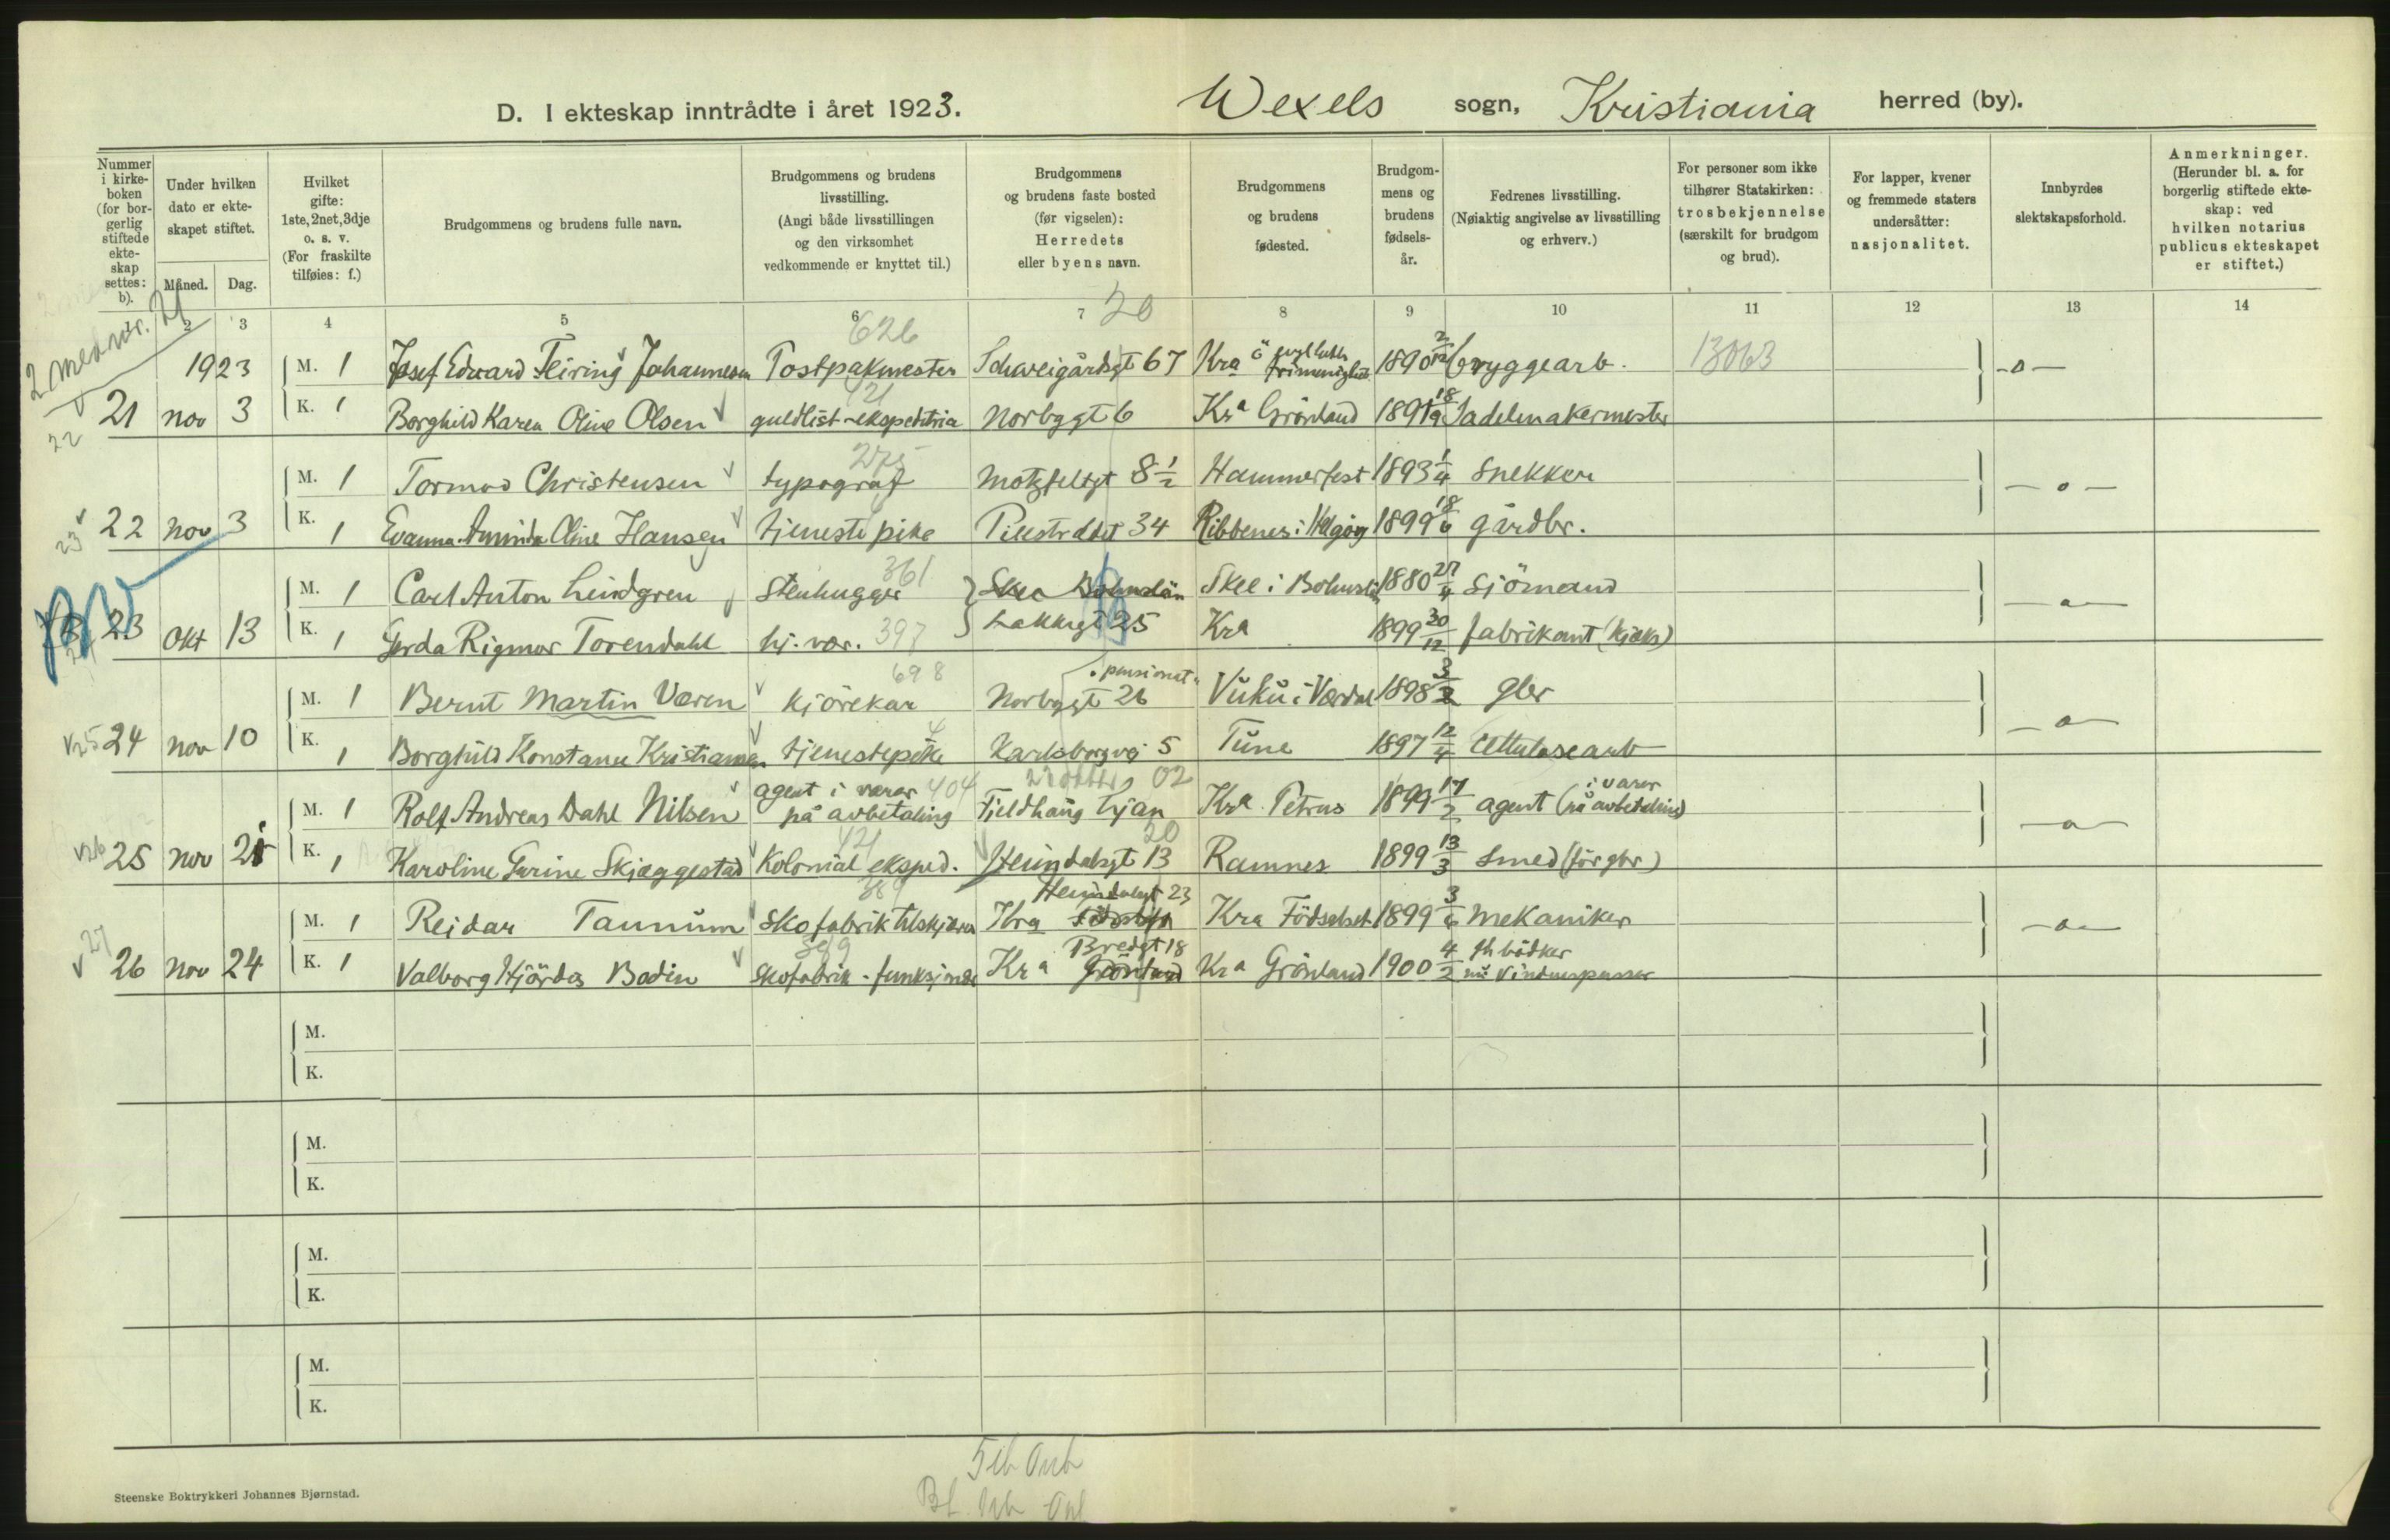 D. I ekteskap inntrådte i året 1923. Wexels sogn, Kristiania herred (by).
Nummer i kirkeboken (for borgerlig stiftede ekteskap settes: b).
Under hvilken dato er ekteskapet stiftet.
Måned. Dag.
Hvilket gifte: 1ste, 2net, 3dje o. s. v. (For fraskilte tilføies: f.)
Brudgommens og brudens fulle navn.
Brudgommens og brudens livsstilling. (Angi både livsstillingen og den virksomhet vedkommende er knyttet til.)
Brudgommens og brudens faste bosted (før vigselen): Herredets eller byens navn.
Brudgommens og brudens fødested.
Brudgommens og brudens fødselsår.
Fedrenes livsstilling. (Nøiaktig angivelse av livsstilling og erhverv.)
For personer som ikke tilhører Statskirken: trosbekjennelse (særskilt for brudgom og brud).
For lapper, kvener og fremmede staters undersåtter: nasjonalitet.
Innbyrdes slektskapsforhold.
Anmerkninger. (Herunder bl. a. for borgerlig stiftede ekteskap: ved hvilken notarius publicus ekteskapet er stiftet.)
2 3 4 5 6 7 8 9 10 11 12 13 14
2 med nr. 21
626 20
1923 M. 1 Josef Edvard Feiring Johannesen Postpakmester Schweigårdsgt 67 Kra 1890 2/12 bryggearb. 13063 -o-
421
21 nov 3 K. 1 Borghild Karen Oline Olsen guldlist-ekspeditrice Norbygt 6 Kra Grönland 1891 18/9 Sadelmakermester
22
275
M. 1 Tormod Christensen typograf Motzfeldtgt 8 1/2 Hammerfest 1893 1/4 Snekker -o-
23 22 nov 3 K. 1 Evanna Aminda Oline Hansen tjenestepike Pilestrædet 34 Ribbenes i Helgöy 1899 18/6 gårdbr.
361
M. 1 Carl Anton Lindgren Stenhugger Skee Bohuslän Skee i Bohuslän 1880 27/4 Sjömand -o-
23 Okt 13 K. 1 Gerda Rigmor Torendahl hj. vær. 397 Lakkegt 25 Kra 1899 30/12 fabrikant (kjæks)
698 "pensionat"
M. 1 Bernt Martin Væren kjörekar Norbygt 26 Vuku i Værdal 1898 3/2 gbr -o-
4
25 24 nov 10 K. 1 Borghild Konstanse Kristiansen tjenestepike Karlsborgvei 5 Tune 1897 12/4 Cellulosearb
404 02
M. 1 Rolf Andreas Dahl Nilsen agent i varer på avbetaling Fjeldhaug Ljan Kra Petrus 1899 17/2 agent (i varer på avbetaling) -o-
421 20
26 25 nov 21 K. 1 Karoline Turine Skjæggestad Kolonial eksped. Heimdalsgt 13 Ramnes 1899 13/3 Smed (før gbr)
389 Heimdalsgt 23
M. 1 Reidar Taunum Skofabrik tilskjærer Kra Kra Födselsst 1899 3/6 Mekaniker -o-
Bredgt 18
27 26 nov 24 K. 1 Valborg Hjördes Bodin Skofabrik-funksjonær Kra Grönland Kra Grönland 1900 4/2 fh bödker nu Vinduspusser
M.
K.
M.
K.
M.
K.
M.
K.
Steenske Boktrykkeri Johannes Bjørnstad.